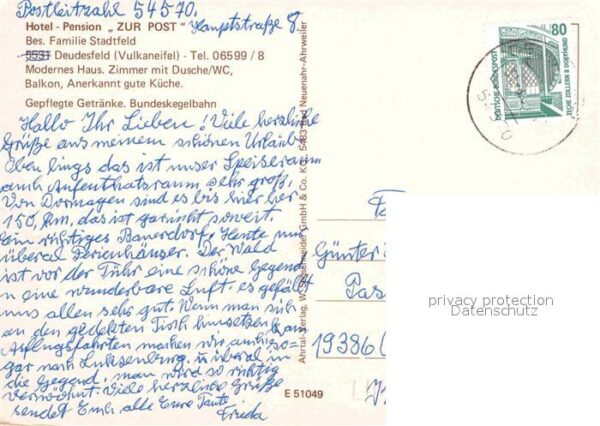 Postleitzahl 54570.
Hotel - Pension „ZUR POST" Hauptstraße 8.
Bes. Familie Stadtfeld
5531 Deudesfeld (Vulkaneifel) - Tel. 06599 / 8
Modernes Haus. Zimmer mit Dusche/WC,
Balkon, Anerkannt gute Küche.
Gepflegte Getränke. Bundeskegelbahn
Hallo Ihr Lieben! Viele herzliche
Grüße aus meinem schönen Urlaub
Oben lings das ist unser Speiseraum
auch Aufenthatsraum sehr groß.
Von Dormagen sind es bis hier her
150, km, das ist garnicht soweit.
ein richtiges Bauerdorf, Heute nu
überal Ferienhäuser. Der Wald
ist vor der Tühr eine schöne Gegend
n eine wunderbare Luft es gefällt
uns allen sehr gut. Wenn man sich
an den gedekten Tisch hinsetzen kam
Asflugsfahrten machen wir auch, so-
gar nach Luksenburg. u. überal in
die Gegend. man wird so richtig
verwöhnt. Viele herzliche Grüße
sendet Euch alle Eure Tante
Frieda
Ahrtal-Verlag, W. GmbH & Co. KG, 5483 Bad Neuenahr-Ahrweiler
E 51049
80
DEUTSCHE BUNDESPOST
ZECHE ZOLLERN II DORTMUND
Fa
Günter
Pas
19386
privacy protection
Datenschutz